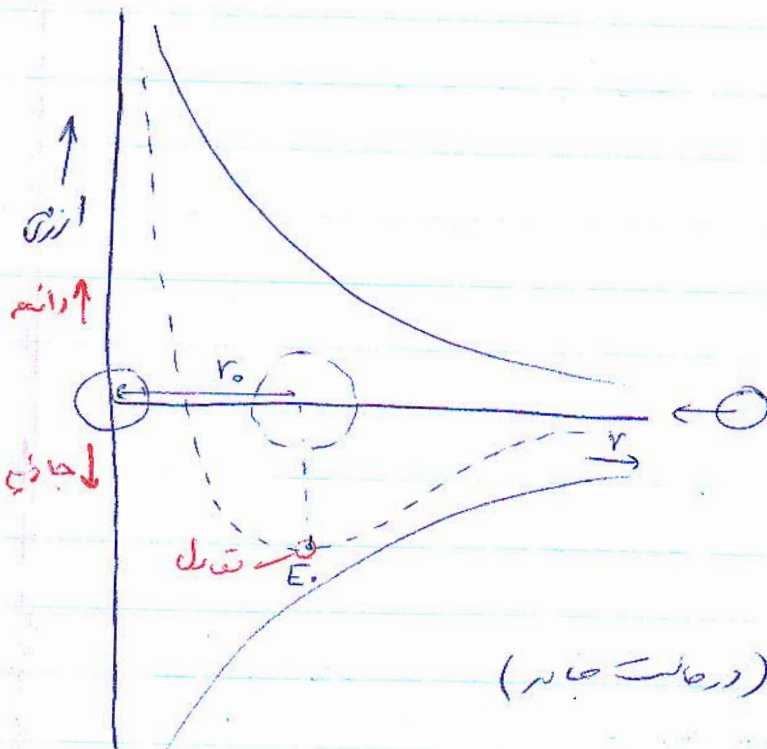 انرژی
دافعه
r₀
جاذبه
r
تعادل
E₀
(در حالت جامد)